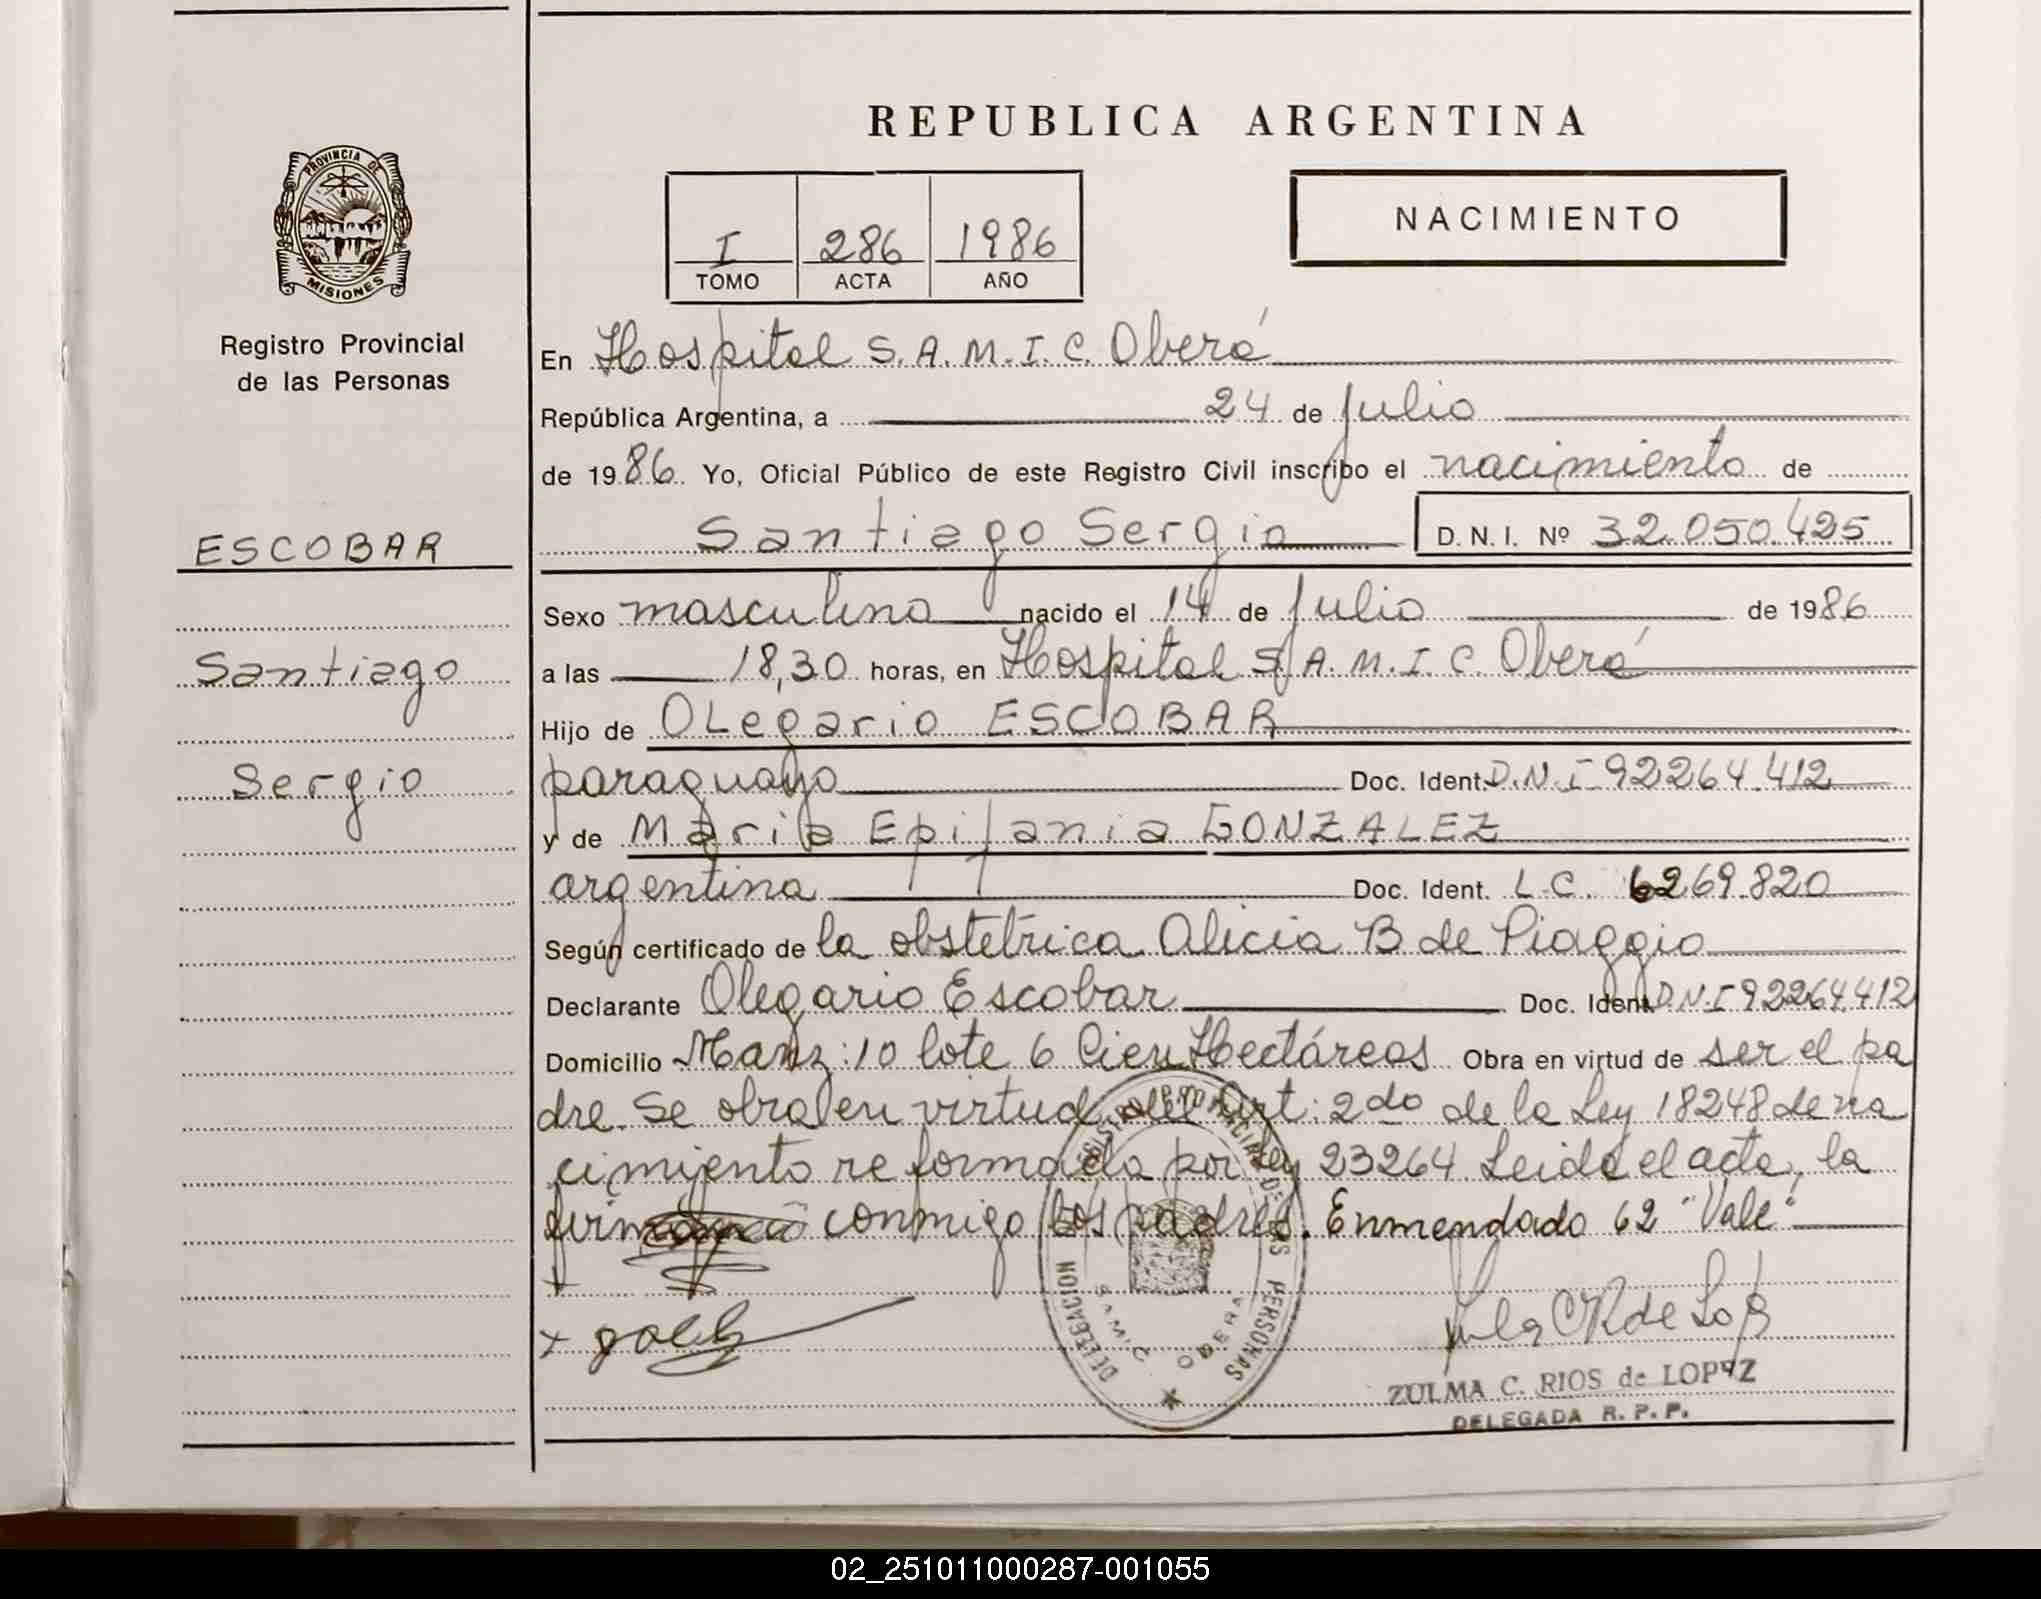 REPUBLICA ARGENTINA
PROVINCIA DE MISIONES
Registro Provincial
de las Personas
I 286 1986
TOMO ACTA AÑO
NACIMIENTO
En Hospital S.A.M.I.C. Oberá
República Argentina, a 24 de Julio
de 1986 Yo, Oficial Público de este Registro Civil inscribo el nacimiento de
Santiago Sergio D.N.I. Nº 32.050.425
ESCOBAR
Sexo masculino nacido el 14 de Julio de 1986
Santiago
a las 18,30 horas, en Hospital S.A.M.I.C. Oberá
Hijo de OLegario ESCOBAR
Sergio
paraguayo Doc. Ident. D.N.I 92264.412
y de Maria Epifania GONZALEZ
argentina Doc. Ident. L.C. 6269.820
Según certificado de la obstetrica Alicia B de Piaggio
Declarante Olegario Escobar Doc. Ident. D.N.I 92264.412
Domicilio Manz: 10 lote 6 Cien Hectáreas Obra en virtud de ser el pa
dre. Se obra en virtud del Art: 2do de la Ley 18248 de na
cimiento reformada por Ley 23264. Leida el acta, la
firman conmigo los padres. Enmendado 62 "Vale"
REGISTRO PROVINCIAL DE LAS PERSONAS
DELEGACION
SAMIC OBERA
ZULMA C. RIOS de LOPEZ
DELEGADA R.P.P.
02_251011000287-001055